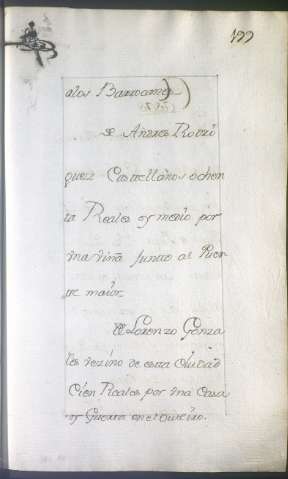 199
alos Barrocanes
De Andres Rodri
guez Castellanos ochen
ta Reales y medio por
vna viña junto al Puen
te maior.
De Lorenzo Gonza
les vezino de esta Ciudad
Cien Reales por vna Casa
y Guerta en el